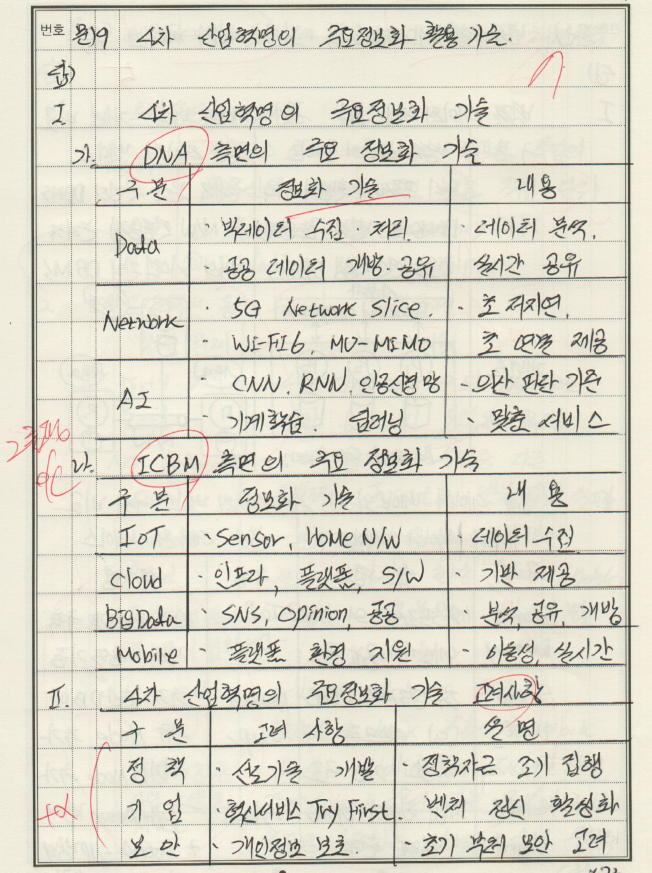 번호 문19 4차 산업혁명의 주요정보화 활용 기술.
답)
I 4차 산업혁명의 주요정보화 기술
가. DNA 측면의 주요 정보화 기술
구 분 정보화 기술 내용
Data · 빅데이터 수집·처리. · 데이터 분석,
· 공공 데이터 개방·공유 실시간 공유
Network · 5G Network Slice. · 초저지연,
· WI-FI6, MU-MIMO 초연결 제공
AI · CNN, RNN, 인공신경망 · 의사 판단 기준
· 기계학습, 딥러닝 · 맞춤 서비스
나. ICBM 측면의 주요 정보화 기술
구 분 정보화 기술 내용
IoT · Sensor, Home N/W · 데이터 수집
Cloud · 인프라, 플랫폼, S/W · 기반 제공
BigData · SNS, Opinion, 공공 · 분석, 공유, 개방
Mobile · 플랫폼 환경 지원 · 이동성, 실시간
II. 4차 산업혁명의 주요정보화 기술 고려사항
구 분 고려 사항 설명
정책 · 선도기술 개발 · 정책자금 조기 집행
기업 · 혁신서비스 Try First. 벤처 정신 활성화
보안 · 개인정보 보호. · 초기 부터 보안 고려